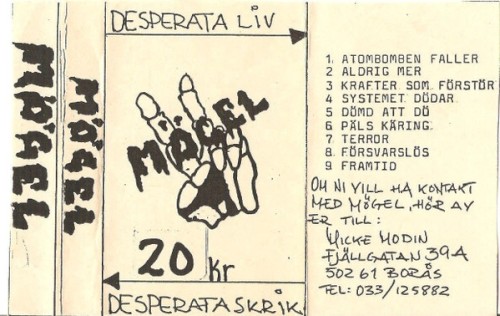 MÖGEL
MÖGEL
DESPERATA LIV
MÖGEL
20 kr
DESPERATA SKRIK
1. ATOMBOMBEN FALLER
2 ALDRIG MER
3 KRAFTER SOM FÖRSTÖR
4 SYSTEMET DÖDAR
5 DÖMD ATT DÖ
6 PÄLS KÄRING
7 TERROR
8 FÖRSVARSLÖS
9 FRAMTID
OM NI VILL HA KONTAKT
MED MÖGEL, HÖR AV
ER TILL:
MICKE MODIN
FJÄLLGATAN 39A
502 61 BORÅS
TEL: 033/125882